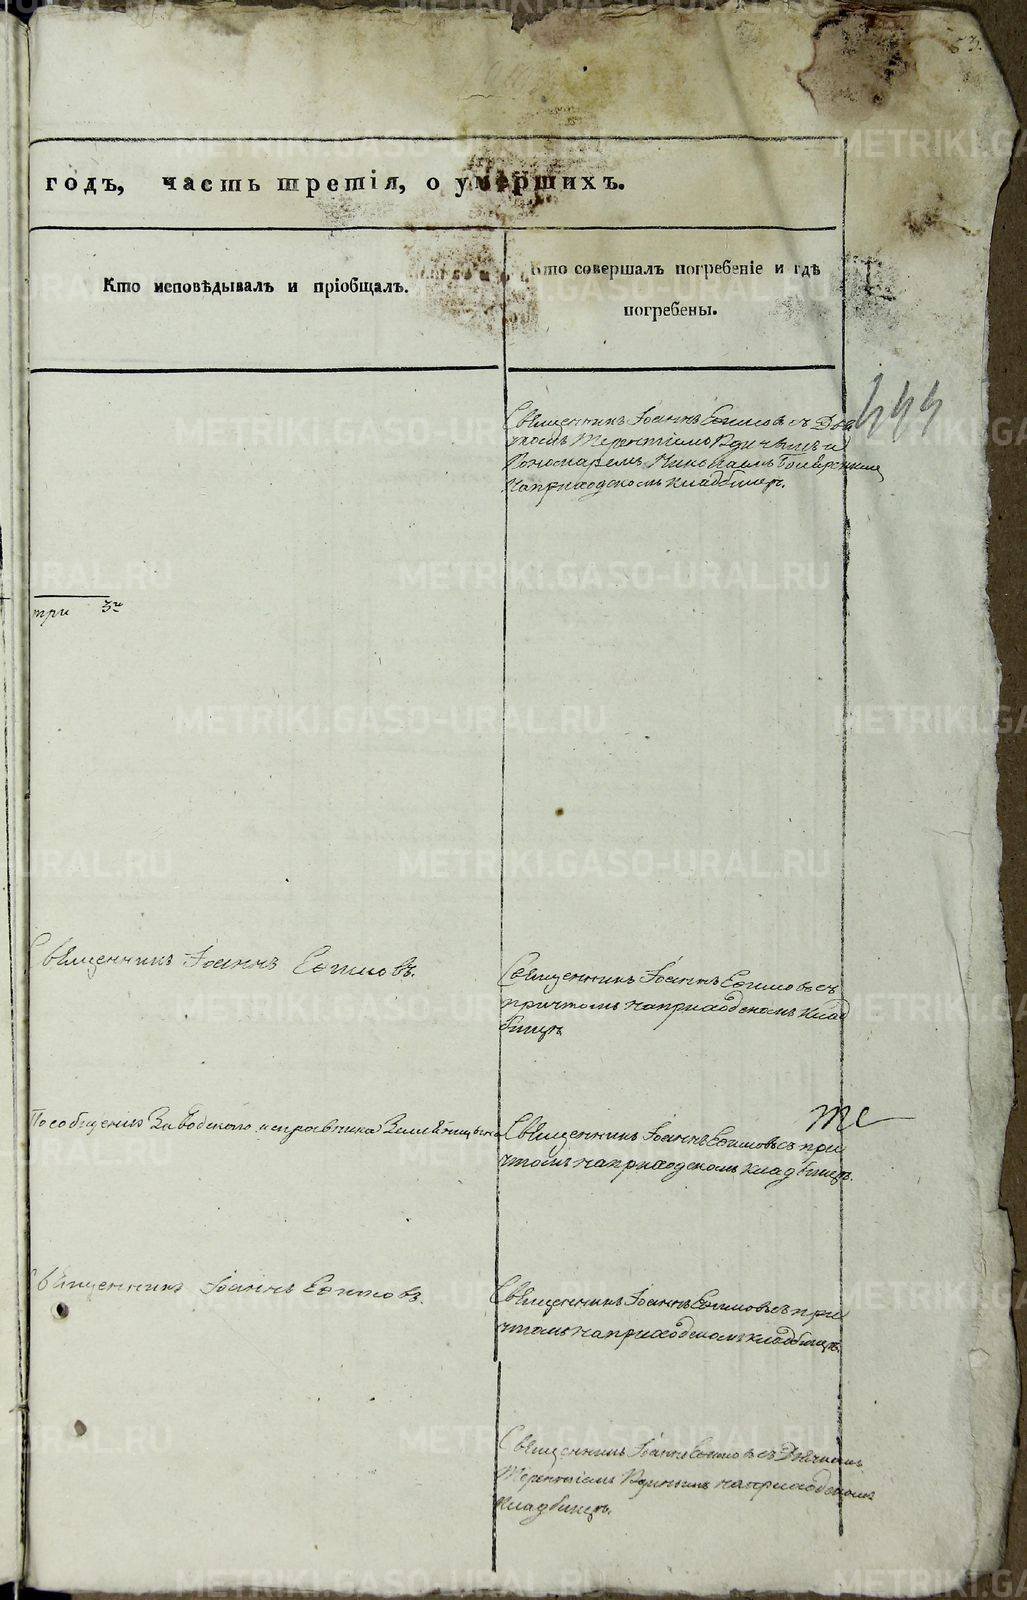 годъ, часть третія, о умершихъ.
Кто исповѣдывалъ и пріобщалъ.
Кто совершалъ погребеніе и гдѣ
погребены.
444
Священникъ Іоаннъ Ефимовъ съ
Терентіемъ
Пономаремъ Николаемъ
на приходскомъ кладбищѣ.
три 3
Священникъ Іоаннъ Ефимовъ.
Священникъ Іоаннъ Ефимовъ съ
причтомъ на приходскомъ клад
бищѣ
По сообщенію Заводского исправника
Священникъ Іоаннъ Ефимовъ съ при
чтомъ на приходскомъ кладбищѣ.
Священникъ Іоаннъ Ефимовъ.
Священникъ Іоаннъ Ефимовъ съ при
чтомъ на приходскомъ кладбищѣ.
Священникъ Іоаннъ Ефимовъ съ Дьячкомъ
Терентіемъ на приходскомъ
кладбищѣ.
METRIKI.GASO-URAL.RU